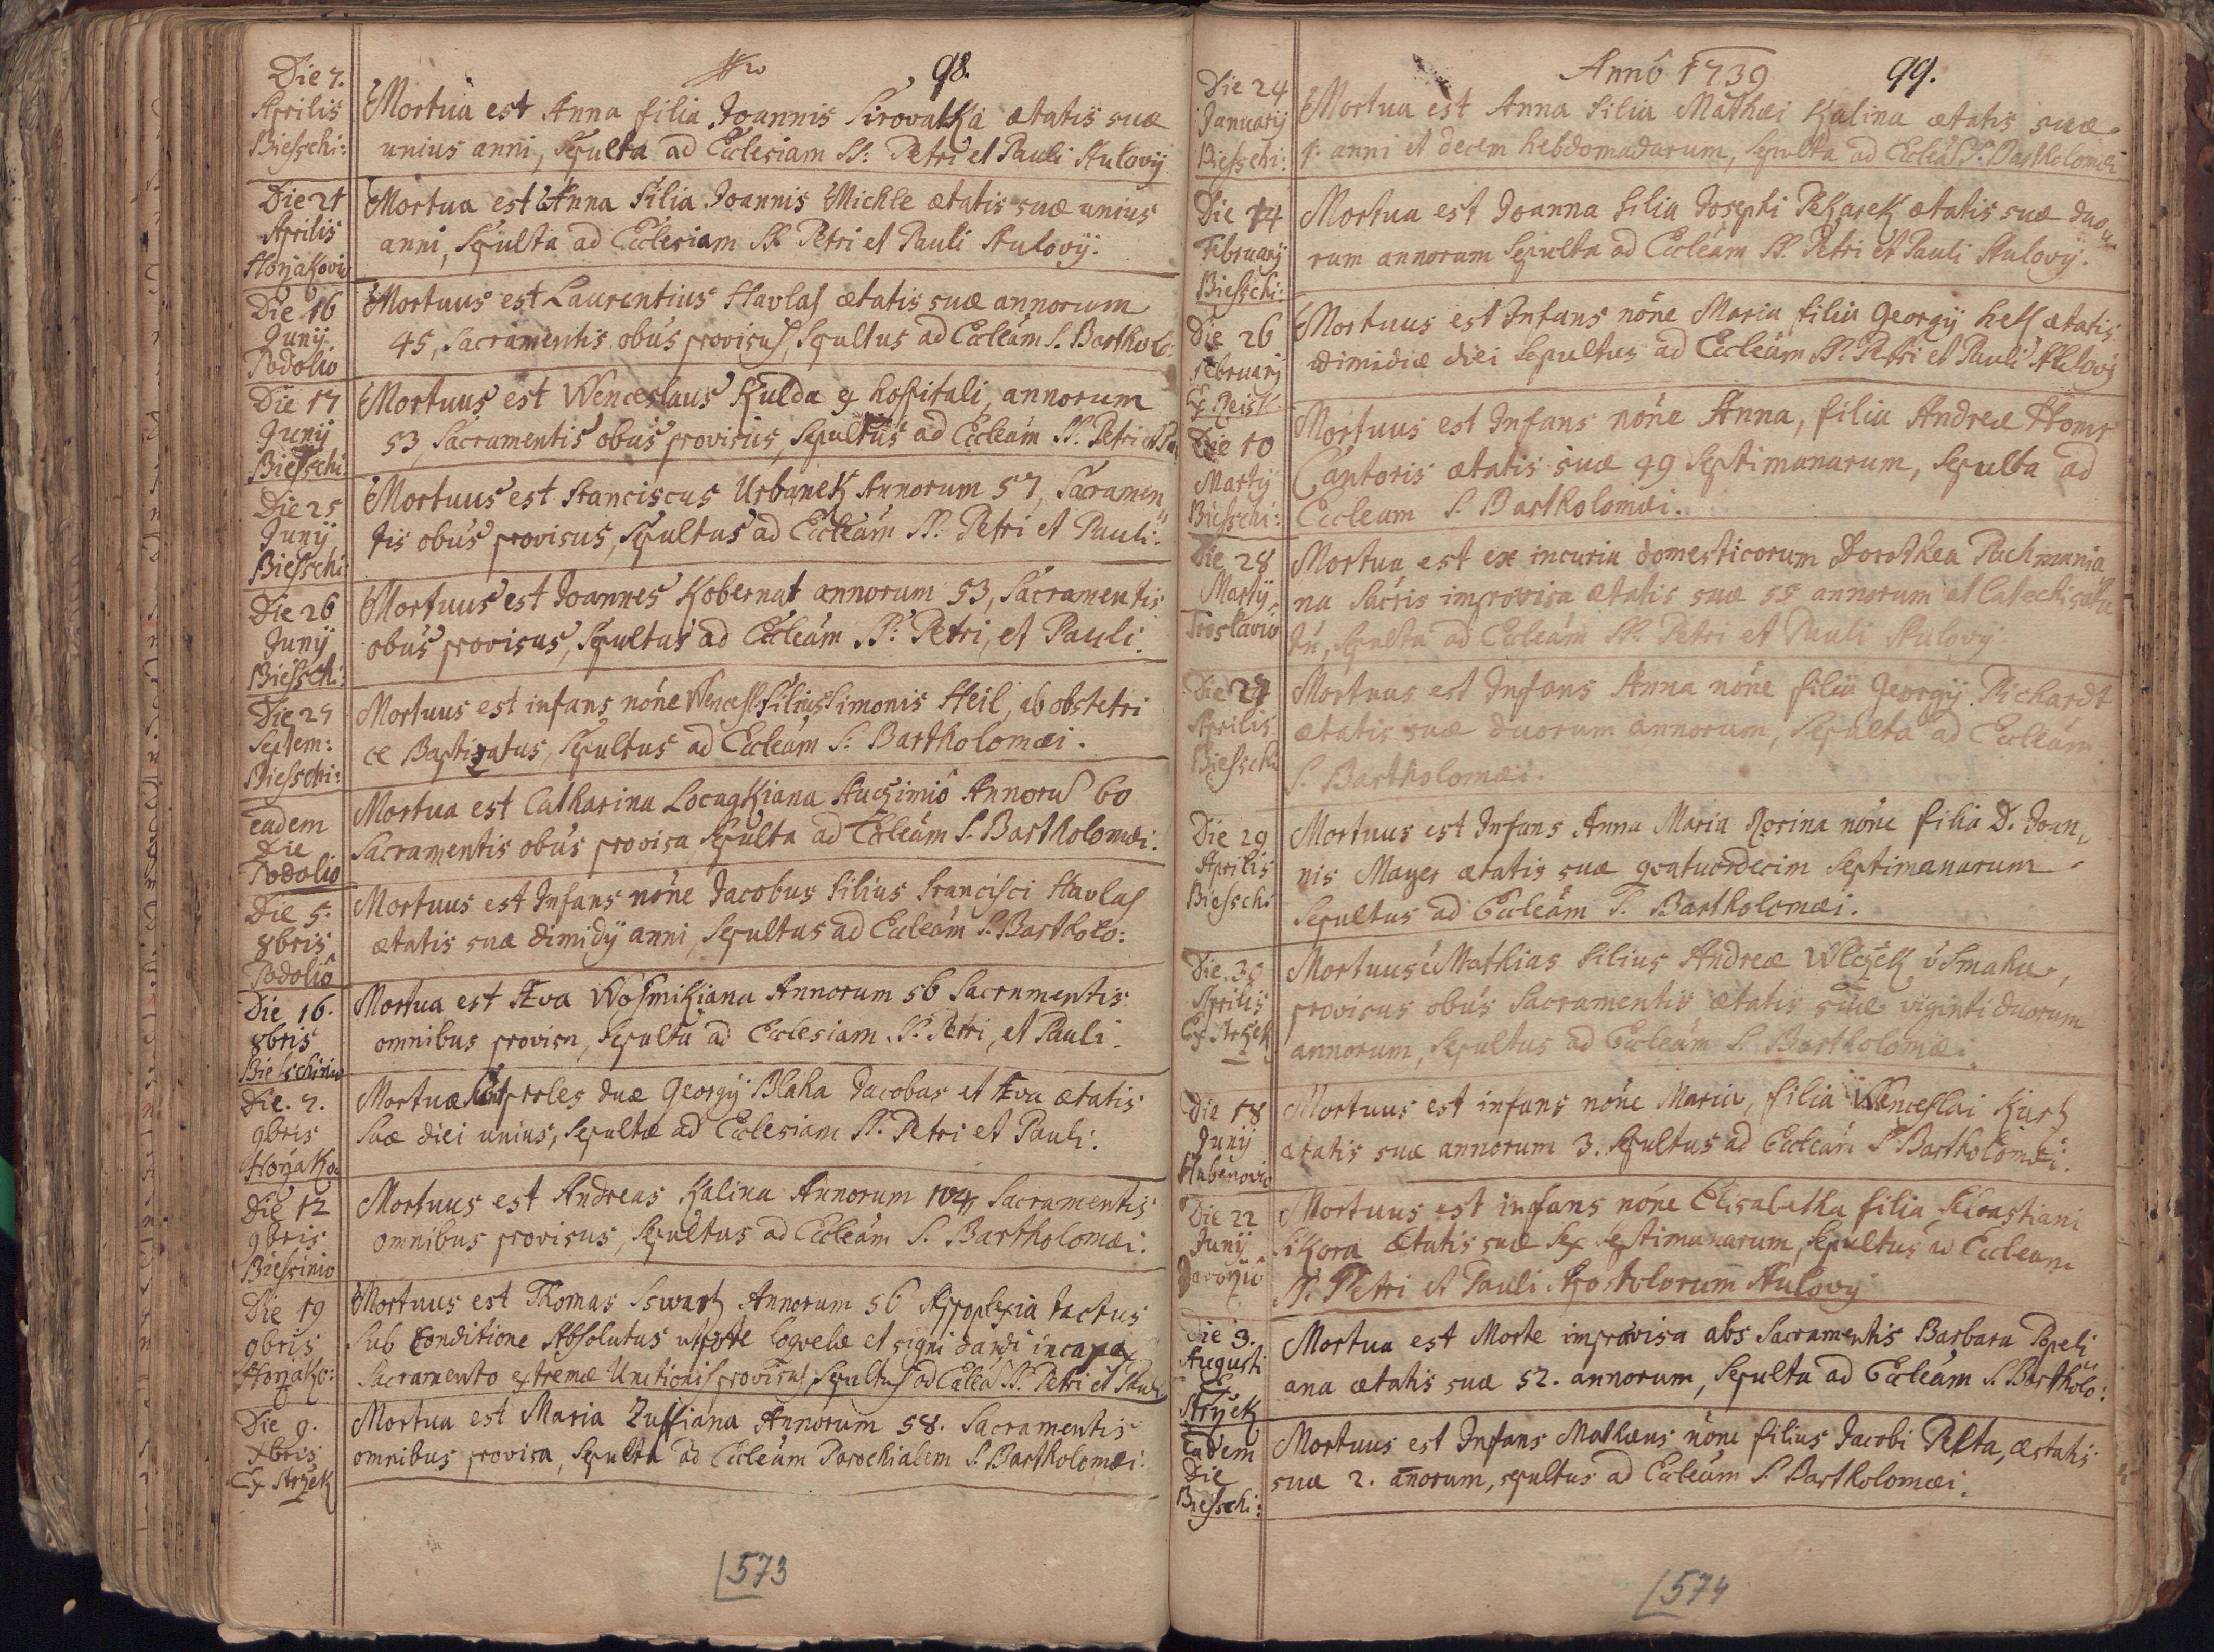 98.
Die 7.
Aprilis
Biesschi:
Mortua est Anna filia Joannis Sirovatka ætatis suæ
unius anni, Sepulta ad Ecclesiam SS: Petri et Pauli Hulovÿ
Die 21
Aprilis
Horžakovic
Mortua est Anna Filia Joannis Michle ætatis suæ unius
anni, Sepulta ad Ecclesiam SS. Petri et Pauli Hulovÿ.
Die 16
Junÿ
Podolio
Mortuus est Laurentius Havlas ætatis suæ annorum
45, Sacramentis obus provisus, Sepultus ad Eccleam S. Bartholo:
Die 17
Junÿ
Biesschi
Mortuus est Wenceslaus Kulda ex hospitali, annorum
53, Sacramentis obus provisus, Sepultus ad Eccleam SS. Petri et Pa
Die 25
Junÿ
Biesschi
Mortuus est Franciscus Urbanek Annorum 57, Sacramen
tis obus provisus, Sepultus ad Eccleam SS. Petri et Pauli.
Die 26
Junÿ
Biesschi:
Mortuus est Joannes Kobernat annorum 53, Sacramentis
obus provisus, Sepultus ad Eccleam SS. Petri, et Pauli.
Die 29
Septem:
Biesschi:
Mortuus est infans nōne Wencesl: Filius Simonis Heil, ab obstetri
ce Baptizatus, Sepultus ad Eccleam S. Bartholomæi.
eadem
Die
Podolio
Mortua est Catharina Annorū 60
Sacramentis obus provisa Sepulta ad Eccleam S. Bartholomæi.
Die 5.
8bris
Podolio
Mortuus est Infans nōne Jacobus Filius Francisci Havlas
ætatis suæ dimidÿ anni, Sepultus ad Eccleam S. Bartholo:
Die 16.
8bris
Bieschinio
Mortua est Eva Wosmikiana Annorum 56 Sacramentis
omnibus provisa, Sepulta ad Ecclesiam SS. Petri, et Pauli.
Die. 7.
9bris
Mortuæ sunt proles duæ Georgÿ Blaha Jacobus et Eva ætatis
suæ diei unius, Sepultæ ad Ecclesiam SS. Petri et Pauli.
Die 12
9bris
Biessinio
Mortuus est Andreas Kalina Annorum 104, Sacramentis
omnibus provisus, Sepultus ad Eccleam S. Bartholomæi.
Die 19
9bris
Horžako:
Mortuus est Thomas Sswartz Annorum 56 Apoplexia tactus
Sub Conditione Absolutus utpote loquelæ et signi dandi incapax
Sacramento extremæ Unctionis provisus, Sepultus ad Ecclea SS. Petri et Pauli
Die 9.
Xbris
Ex Strzek
Mortua est Maria Annorum 58. Sacramentis
omnibus provisa, Sepulta ad Eccleam Parochialem S. Bartholomæi.
573
Anno 1739
99.
Die 24
Januarÿ
Biesschi:
Mortua est Anna Filia Mathæi Kalina ætatis suæ
1. anni et decem hebdomadarum, Sepulta ad Eccleā S. Bartholomæi
Die 14
Februarÿ
Biesschi:
Mortua est Joanna Filia Josephi Pekarek ætatis suæ duo
rum annorum Sepulta ad Eccleam SS. Petri et Pauli Hulovÿ.
Die 26
Februarÿ
Mortuus est Infans nōne Maria filia Georgÿ ætatis
dimidiæ diei Sepultus ad Eccleam SS. Petri et Pauli Hulovÿ
Die 10
Martÿ
Biesschi:
Mortuus est Infans nōne Anna, filia Andreæ
Cantoris ætatis suæ 49 Septimanarum, Sepulta ad
Eccleam S. Bartholomæi.
Die 28
Martÿ
Mortua est ex incuria domesticorum Dorothea
na Sacris improvisa ætatis suæ 55 annorum
Sepulta ad Eccleam SS. Petri et Pauli Hulovÿ
Die 27
Aprilis
Biessch
Mortuus est Infans Anna nōne filia Georgÿ Pichardt
ætatis suæ duorum annorum, Sepulta ad Eccleam
S. Bartholomæi.
Die 29
Aprilis
Biesschi
Mortuus est Infans Anna Maria Rosina nōne filia D. Joan
nis Mayer ætatis suæ quatuordecim Septimanarum
Sepultus ad Eccleam S. Bartholomæi.
Die 30
Aprilis
Ex Strzek
Mortuus Mathias Filius Andreæ Wlczek
provisus obus Sacramentis ætatis suæ viginti duorum
annorum, Sepultus ad Eccleam S. Bartholomæi.
Die 18
Junÿ
Mortuus est infans nōne Maria, filia Wenceslai Kurtz
ætatis suæ annorum 3. Sepultus ad Eccleam S. Bartholomæi.
Die 22
Junÿ
Mortuus est infans nōne Elisabetha filia Sebastiani
Sikora ætatis suæ Sex Septimanarum, Sepultus ad Eccleam
SS. Petri et Pauli Apostolorum Hulovÿ
Die 3.
Augusti
Ex
Strzek
Mortua est Morte improvisa abs Sacramentis Barbara Popeli
ana ætatis suæ 52. annorum, Sepulta ad Eccleam S. Bartholo:
Eadem
Die
Biesschi:
Mortuus est Infans Mathæus nōne filius Jacobi Pelta, ætatis
suæ 2. anorum, sepultus ad Eccleam S. Bartholomæi.
574